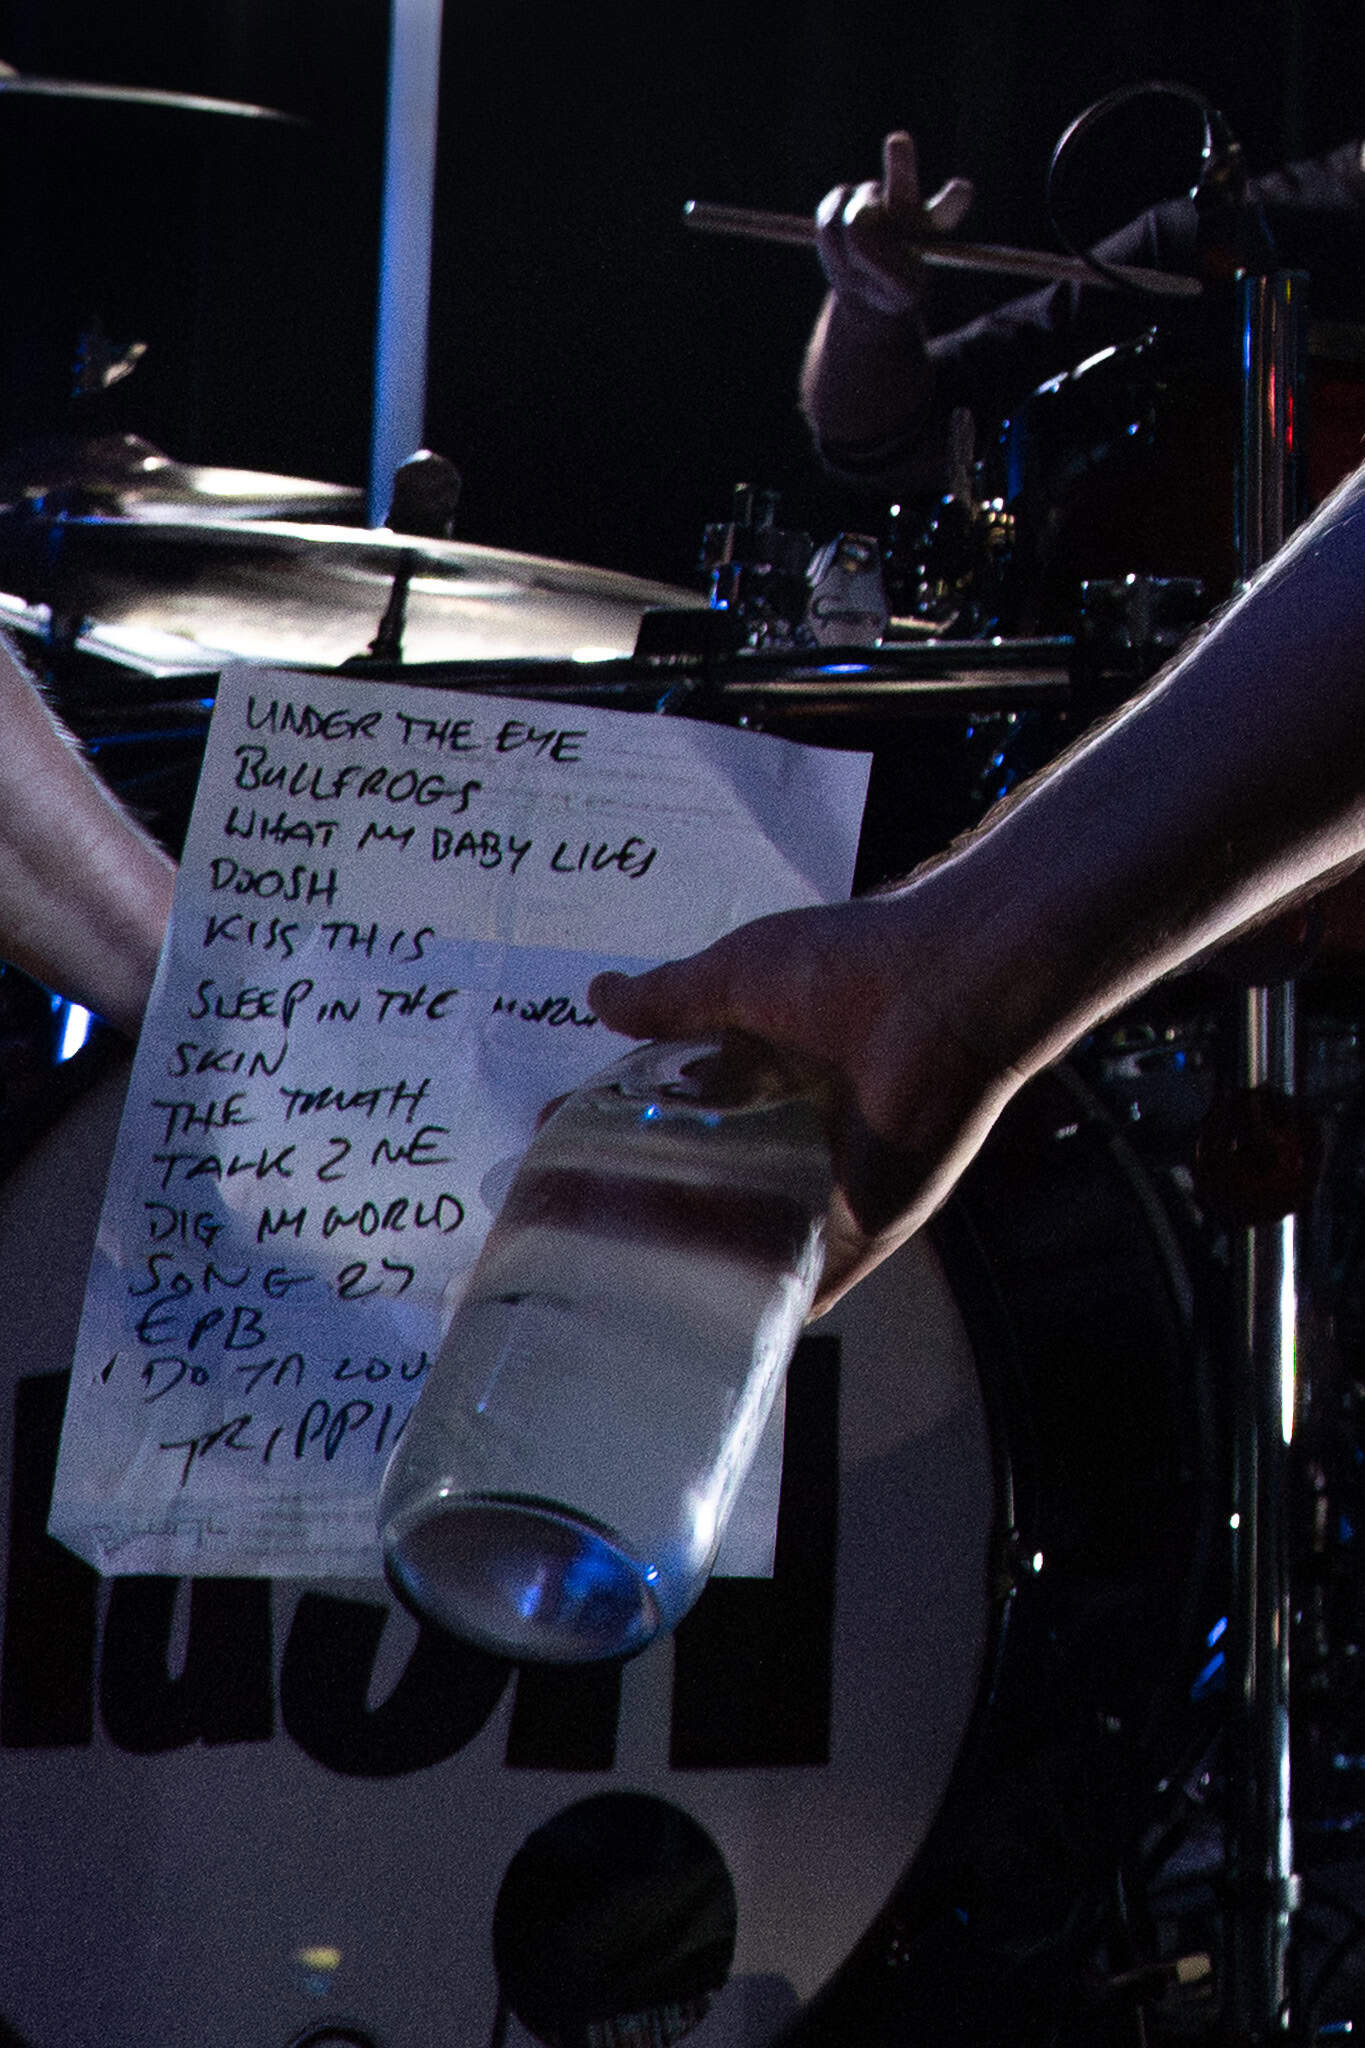 UNDER THE EYE
BULLFROGS
WHAT MY BABY LIKES
DOOSH
KISS THIS
SLEEP IN THE
SKIN
THE TRUTH
TALK 2 ME
DIG MY WORLD
SONG 27
EPB
DO YA LOV
TRIPPI